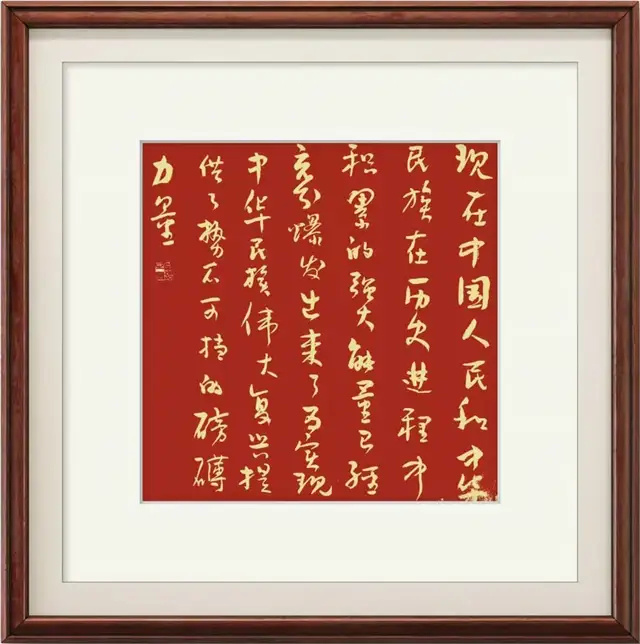 现在中國人民和中华
民族在历史进程中
积累的强大能量已经
充分爆发出来了为实现
中华民族伟大复兴提
供了势不可挡的磅礴
力量